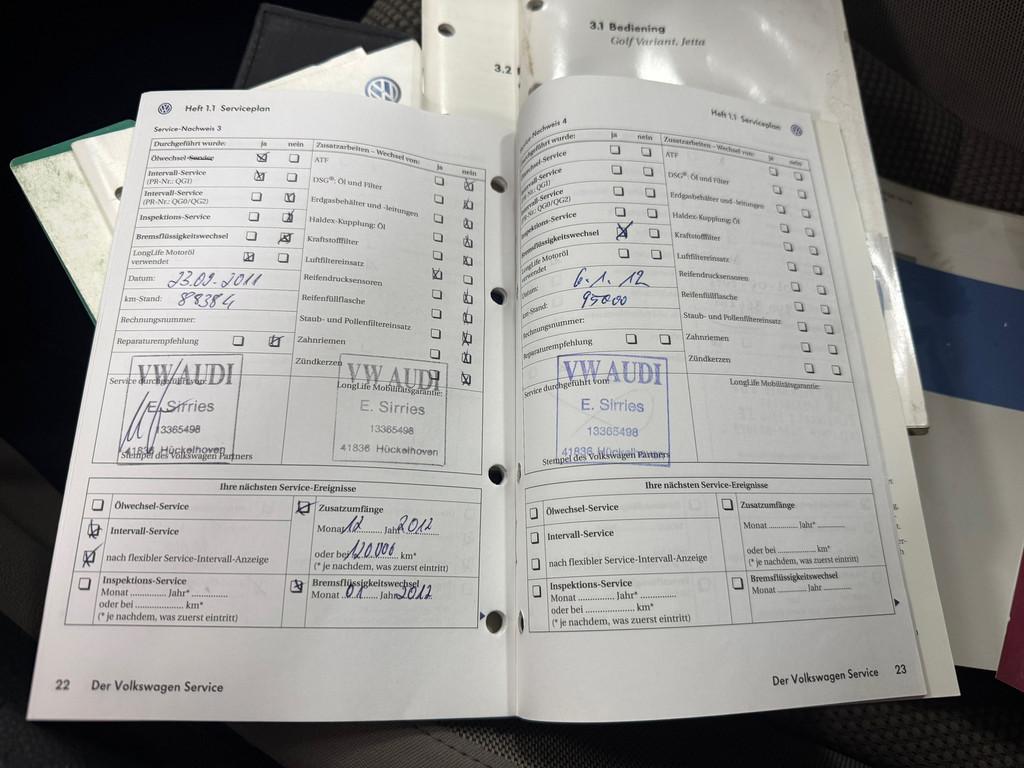 3.1 Bedienung
Golf Variant, Jetta
3.2
Heft 1.1 Serviceplan
Service-Nachweis 3
Durchgeführt wurde: ja nein
Ölwechsel-Service
Intervall-Service
(PR-Nr.: QG1)
Intervall-Service
(PR-Nr.: QG0/QG2)
Inspektions-Service
Bremsflüssigkeitswechsel
LongLife Motoröl
verwendet
Datum: 23.09.2011
km-Stand: 88384
Rechnungsnummer:
Reparaturempfehlung
Zusatzarbeiten – Wechsel von: ja nein
ATF
DSG®: Öl und Filter
Erdgasbehälter und -leitungen
Haldex-Kupplung: Öl
Kraftstofffilter
Luftfiltereinsatz
Reifendrucksensoren
Reifenfüllflasche
Staub- und Pollenfiltereinsatz
Zahnriemen
Zündkerzen
Service durchgeführt von:
VW AUDI
E. Sirries
13365498
41836 Hückelhoven
Stempel des Volkswagen Partners
LongLife Mobilitätsgarantie:
VW AUDI
E. Sirries
13365498
41836 Hückelhoven
Ihre nächsten Service-Ereignisse
Ölwechsel-Service
Intervall-Service
nach flexibler Service-Intervall-Anzeige
Inspektions-Service
Monat ........... Jahr* ...........
oder bei .................... km*
(* je nachdem, was zuerst eintritt)
Zusatzumfänge
Monat 12 Jahr 2012
oder bei 120.000 km*
(* je nachdem, was zuerst eintritt)
Bremsflüssigkeitswechsel
Monat 01 Jahr 2012
22 Der Volkswagen Service
Heft 1.1 Serviceplan
Nachweis 4
ja nein
Intervall-Service
QG0/QG2)
Inspektions-Service
Bremsflüssigkeitswechsel
LongLife Motoröl
verwendet
Datum: 6.1.12
km-Stand: 95000
Rechnungsnummer:
Reparaturempfehlung
Zusatzarbeiten – Wechsel von: ja nein
ATF
DSG®: Öl und Filter
Erdgasbehälter und -leitungen
Haldex-Kupplung: Öl
Kraftstofffilter
Luftfiltereinsatz
Reifendrucksensoren
Reifenfüllflasche
Staub- und Pollenfiltereinsatz
Zahnriemen
Zündkerzen
Service durchgeführt von:
VW AUDI
E. Sirries
13365498
41836 Hückelhoven
Stempel des Volkswagen Partners
LongLife Mobilitätsgarantie:
Ihre nächsten Service-Ereignisse
Ölwechsel-Service
Intervall-Service
nach flexibler Service-Intervall-Anzeige
Inspektions-Service
Monat ........... Jahr* ...........
oder bei .................... km*
(* je nachdem, was zuerst eintritt)
Zusatzumfänge
Monat ........... Jahr* ...........
oder bei .................... km*
(* je nachdem, was zuerst eintritt)
Bremsflüssigkeitswechsel
Monat ........... Jahr ...........
Der Volkswagen Service 23